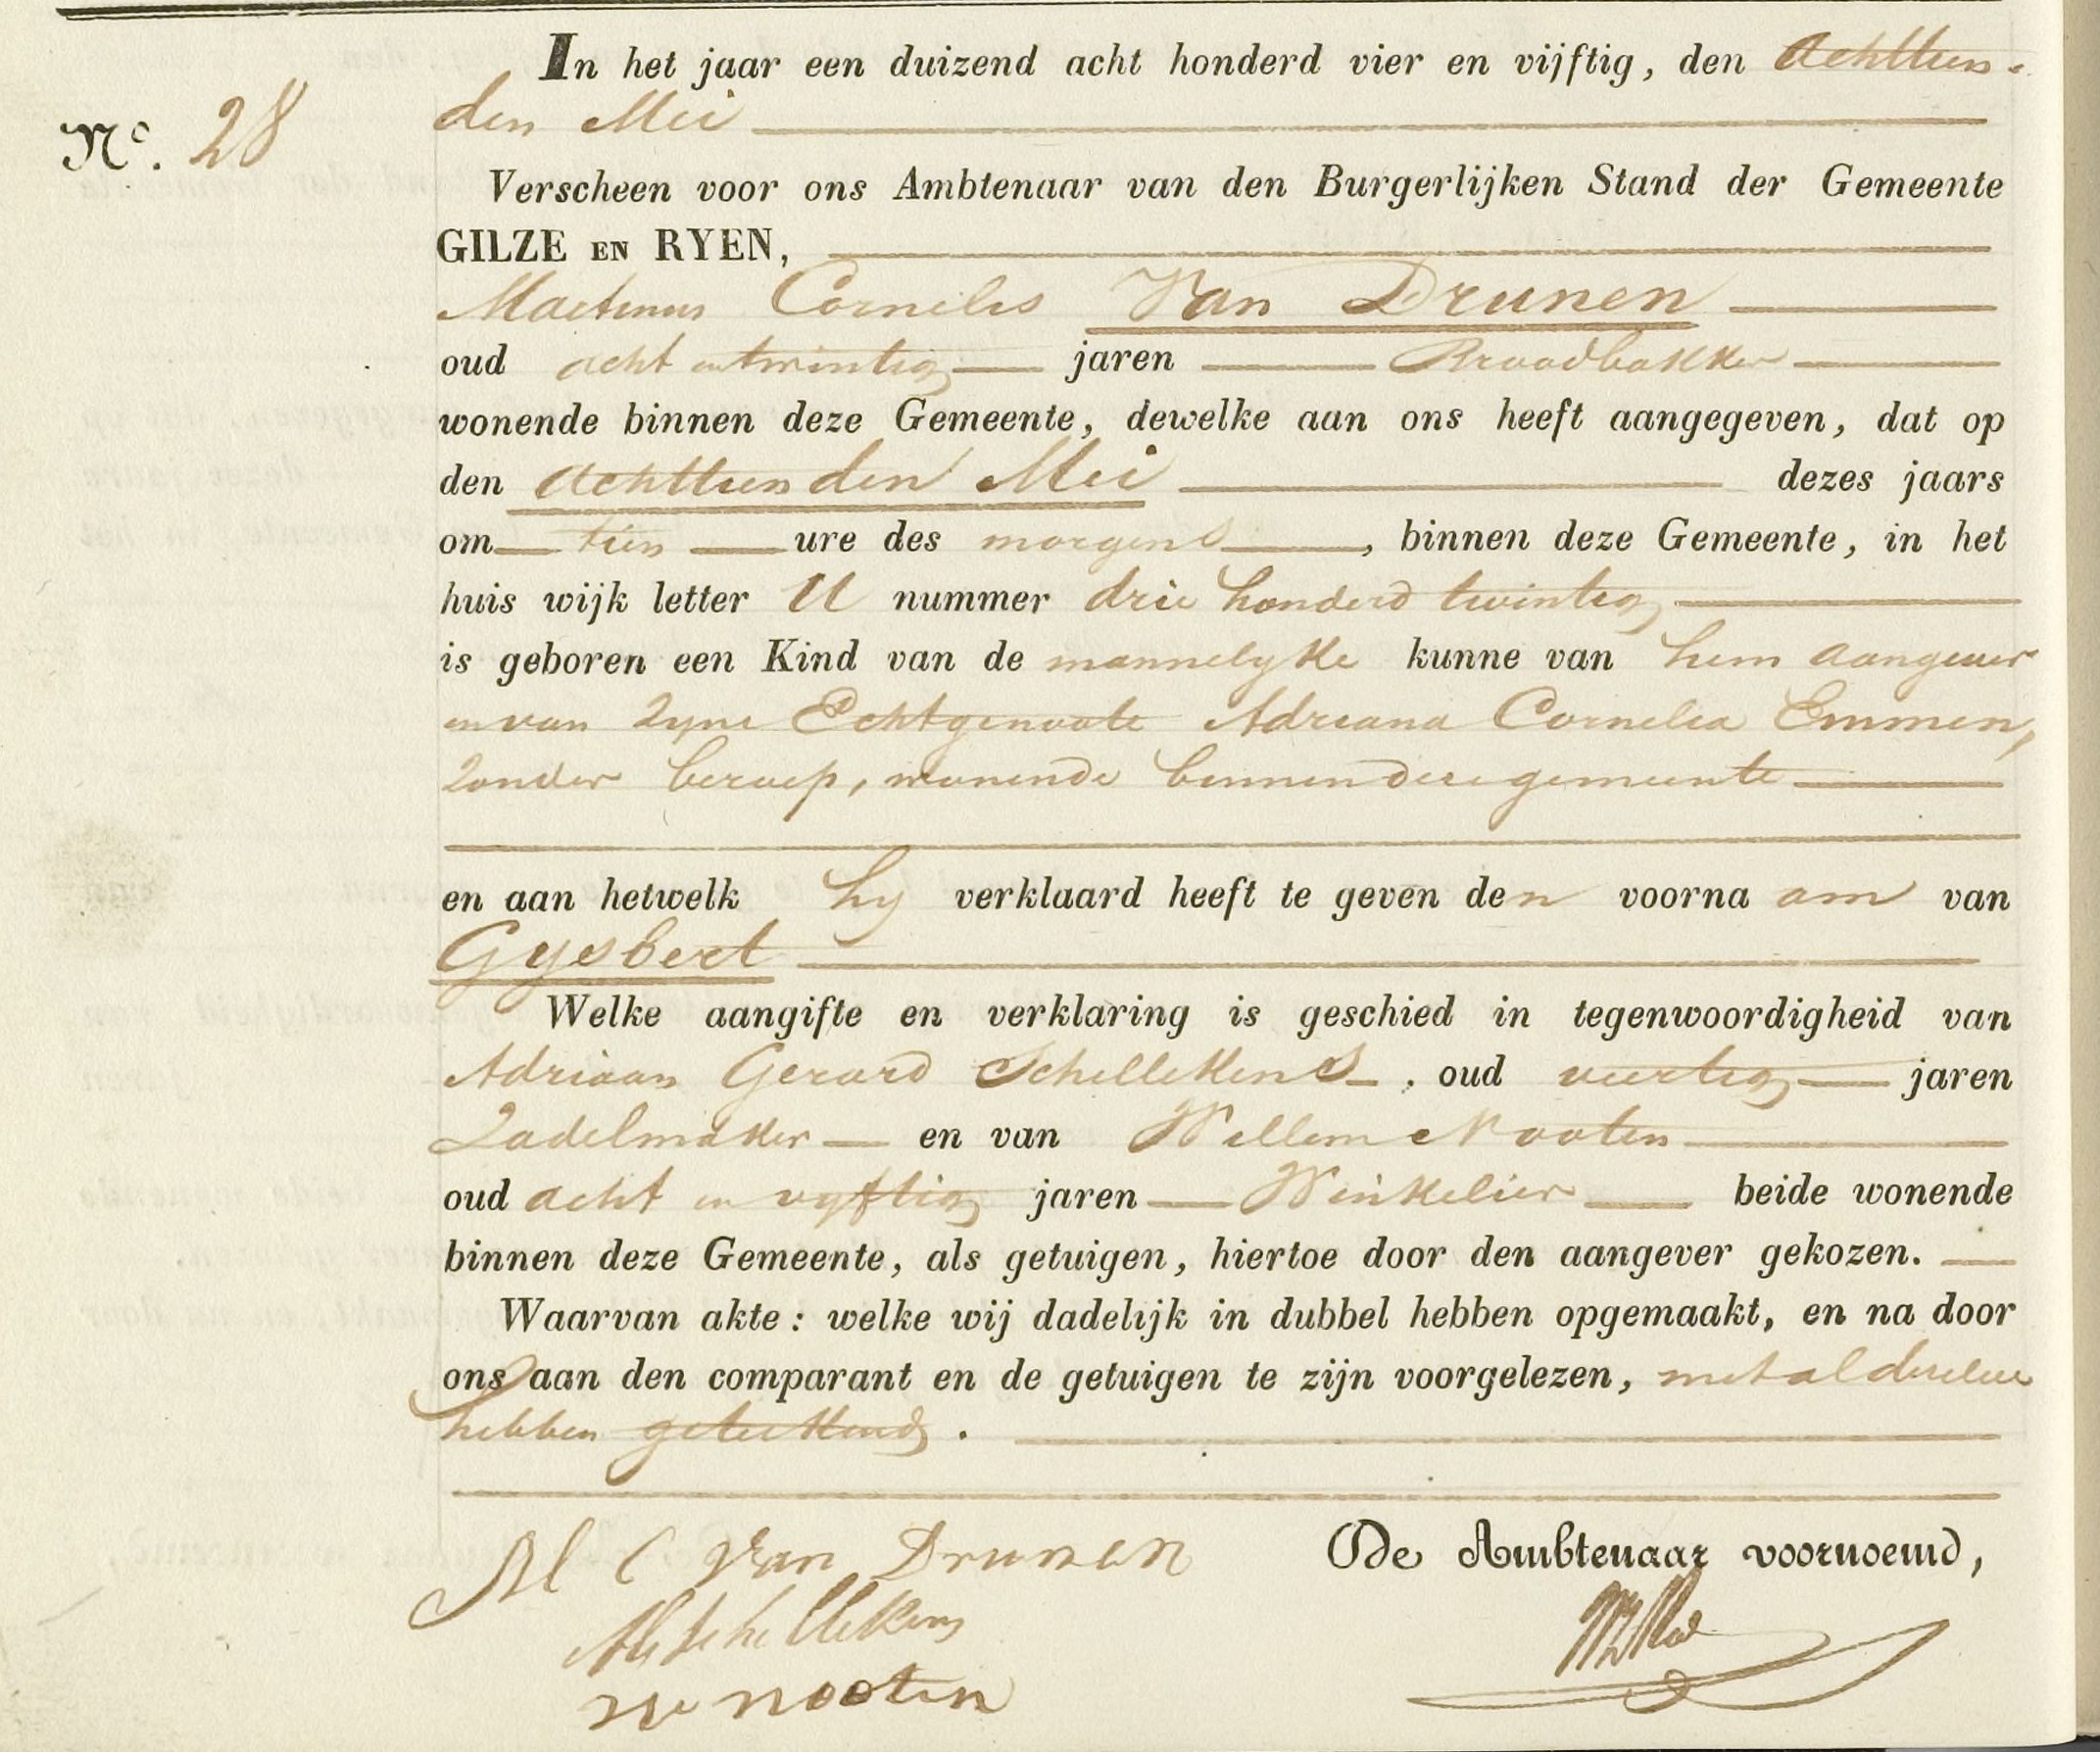 In het jaar een duizend acht honderd vier en vijftig, den Achttien-
den Mei
No. 28
Verscheen voor ons Ambtenaar van den Burgerlijken Stand der Gemeente
GILZE EN RYEN,
Martinus Cornelis Van Drunen
oud acht en twintig jaren Broodbakker
wonende binnen deze Gemeente, dewelke aan ons heeft aangegeven, dat op
den Achttienden Mei dezes jaars
om tien ure des morgens, binnen deze Gemeente, in het
huis wijk letter U nummer drie honderd twintig
is geboren een Kind van de mannelyke kunne van hem aangever
en van zyne Echtgenoote Adriana Cornelia Emmen,
zonder beroep, wonende binnen deze gemeente
en aan hetwelk hy verklaard heeft te geven den voornaam van
Gysbert
Welke aangifte en verklaring is geschied in tegenwoordigheid van
Adriaan Gerard Schellekens, oud veertig jaren
Zadelmaker en van Willem Nooten
oud acht en vyftig jaren Winkelier beide wonende
binnen deze Gemeente, als getuigen, hiertoe door den aangever gekozen.
Waarvan akte: welke wij dadelijk in dubbel hebben opgemaakt, en na door
ons aan den comparant en de getuigen te zijn voorgelezen, met al dezelve
hebben geteekend.
M C Van Drunen De Ambtenaar voornoemd,
AG Schellekens
W Nooten